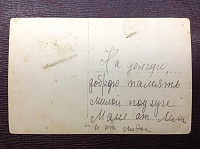 На долгую,
добрую память
Милой подруге
Маме от Лели
и от